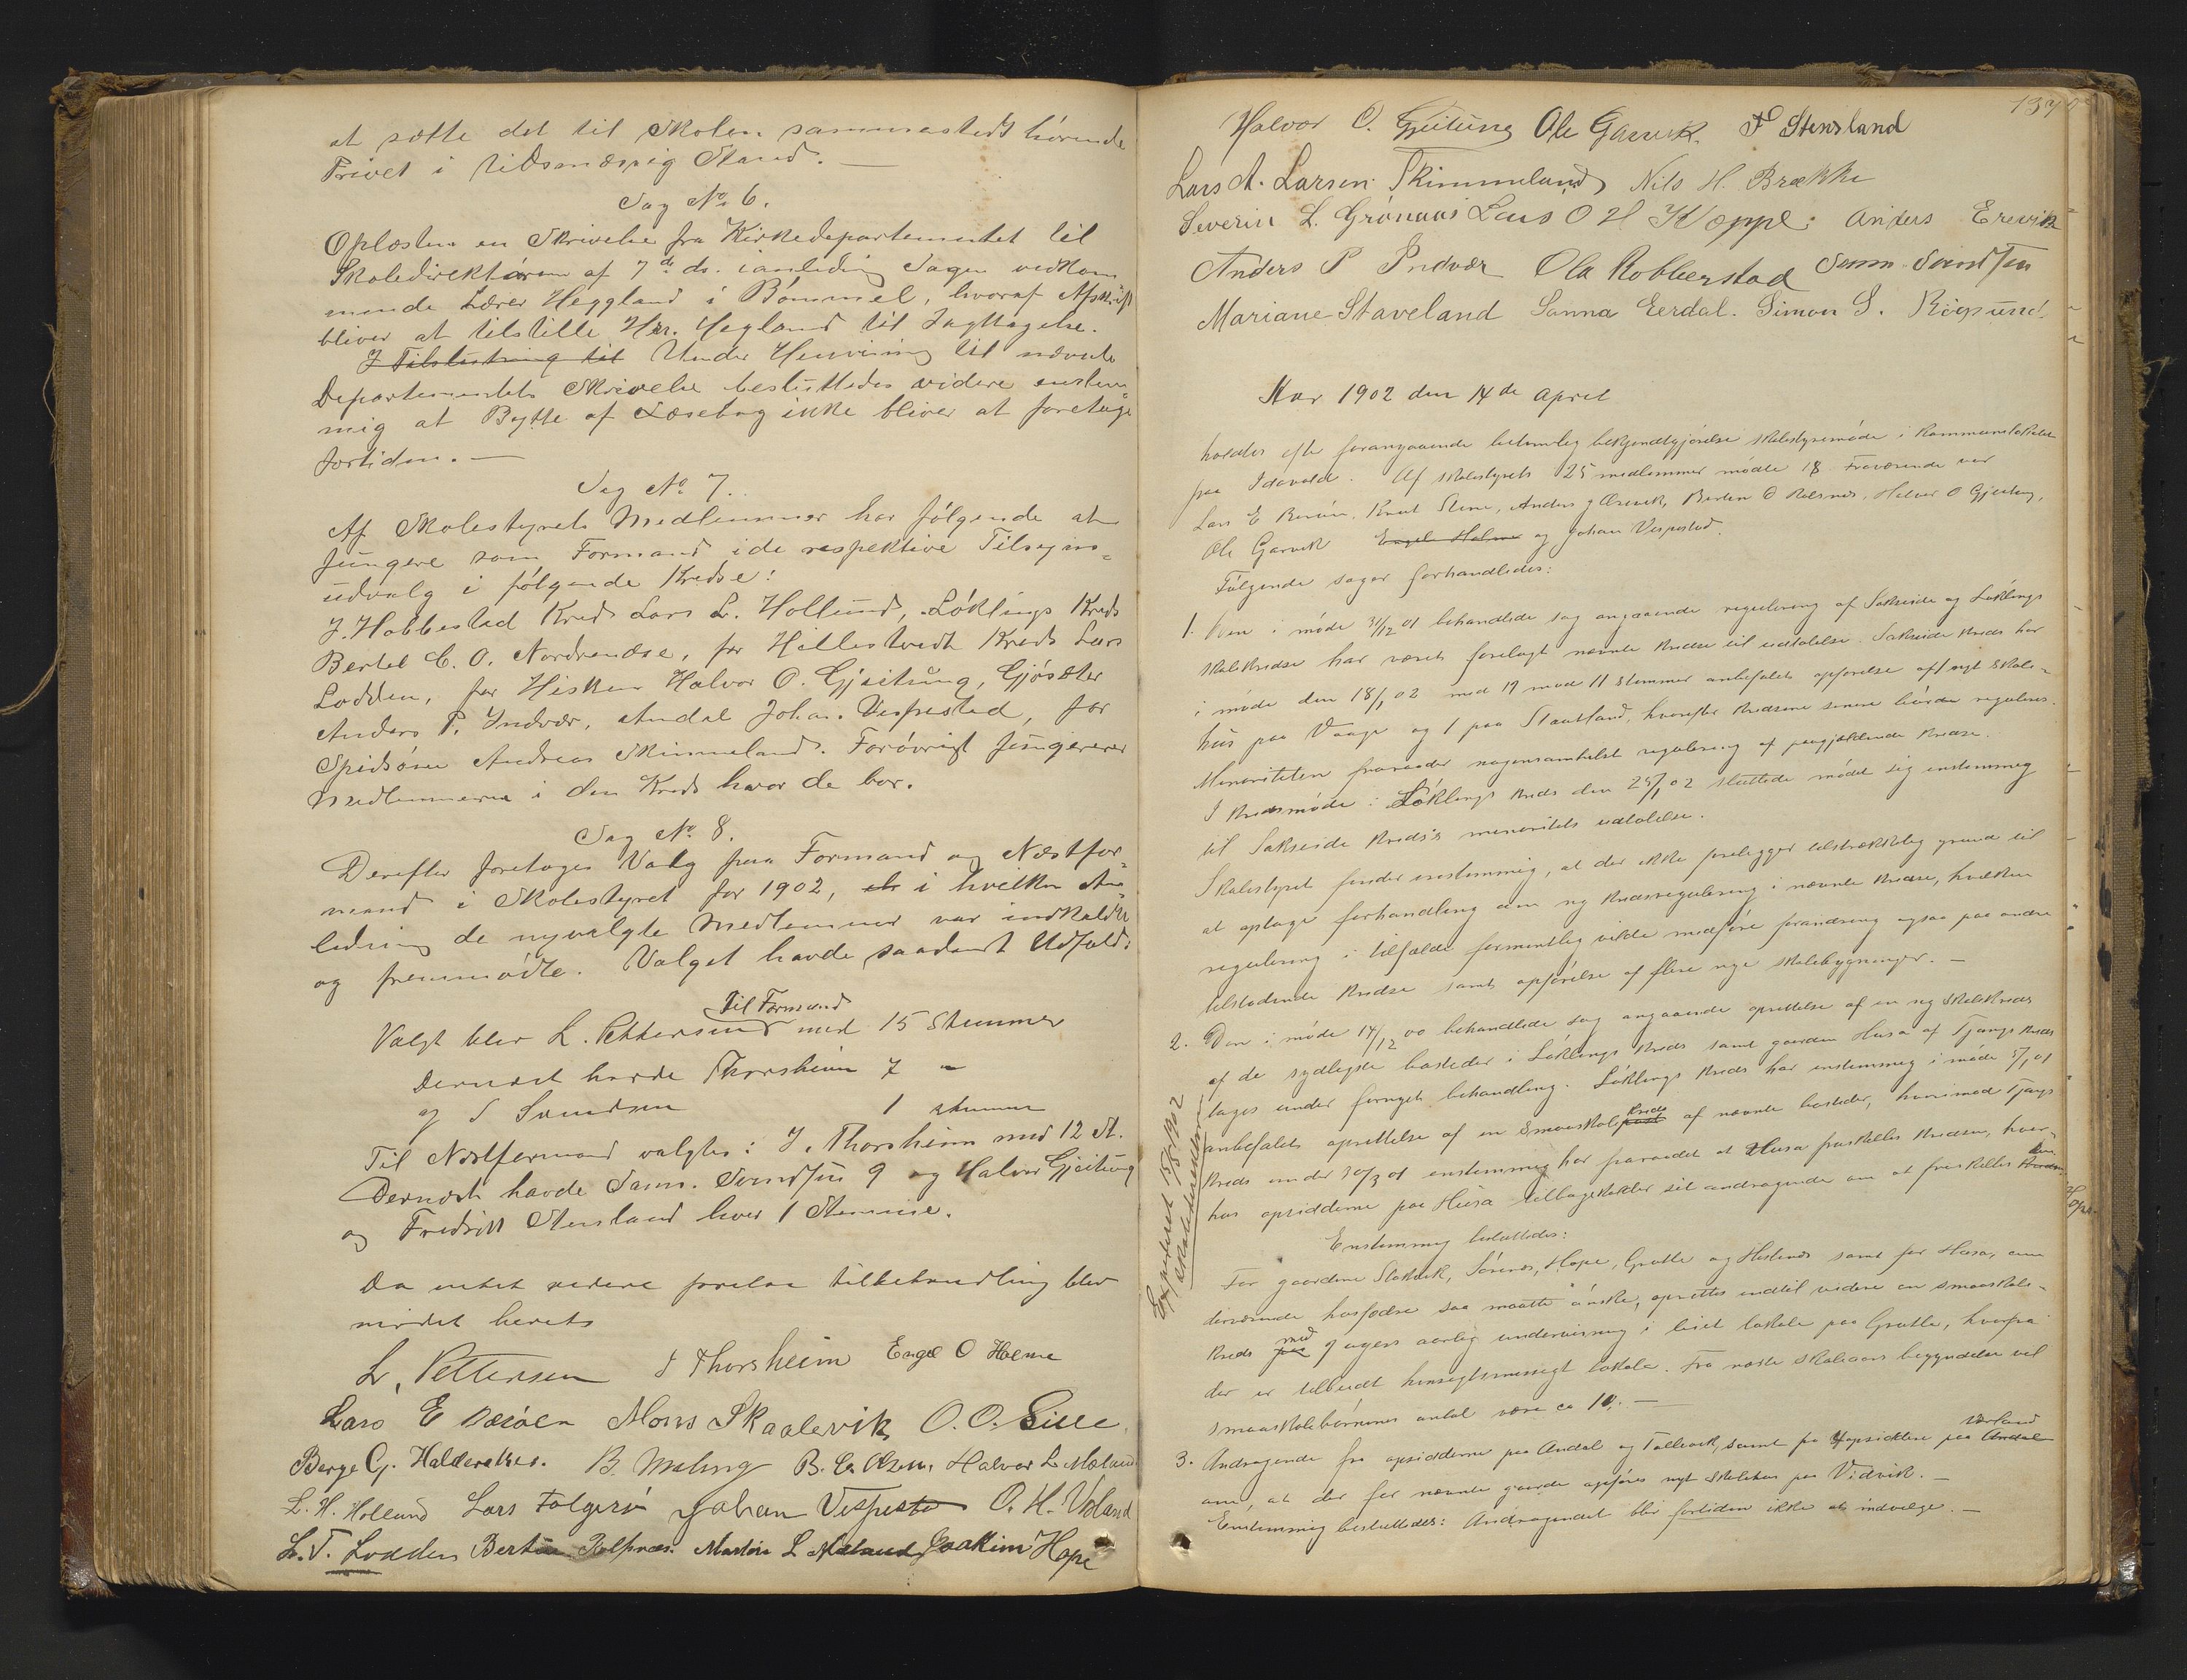 at sætte det til Skolen sammesteds hörende
Privet i tidsmæssig Stand. —
Sag No 6.
Oplæstes en Skrivelse fra Kirkedepartementet til
Skoledirektören af 7de ds. ianledning Sagen vedkom
mende Lærer Heggland i Bömmel, hvoraf Afskrift
bliver at tilstille Hr. Hegland til Iagttagelse.
Under Henvisning til nævnte
Departementets Skrivelse besluttedes videre enstem
mig at Bytte af Læsebog ikke bliver at foretage
fortiden. —
Sag No 7.
Af Skolestyrets Medlemmer har fölgende at
fungere som Formand i de respektive Tilsyns=
udvalg i fölgende Kredse:
I. Habbestad Kreds Lars L. Hollund, Löklings Kreds
Bertel C. O. Nordrendse, for Hillestvedt Kreds Lars
Lodden, for Hisken Halvor O. Gjeitung, Gjösæter
Anders P. Indvær, Andal Johan Vespestad, for
Spidsöen Andreas Skimmeland. Forövrigt fungerer
Medlemmerne i den Kreds hvor de bor.
Sag No 8.
Derefter foretoges Valg paa Formand og Næstfor=
mand i Skolestyret for 1902, i hvilken An=
ledning de nyvalgte Medlemmer var indkaldte
og fremmödte. Valget havde saadant Udfald:
Til Formand
Valgt blev L. Pettersen med 15 Stemmer
Dernæst havde Thorsheim 7 –
og S Svendsen 1 stemme
Til Næstformand valgtes: J. Thorsheim med 12 St.
Dernæst havde Sam. Svendsen 9 og Halvor Gjeitung
og Fredrik Stensland hver 1 Stemme.
Da intet videre forelaa til behandling blev
mödet hevet
L. Pettersen J Thorsheim Engel O Holme
Lars E Mons Skaalevik O. O. Lille
Børge G. Halderaker. B. Maling B. C. Olsen. Halvor L. Mæland
L. H. Hollund Lars Folgerö Johan Vespestad O. H. Vorland
L. T. Lodden Bertin Rolfsnæs. Martin L Mæland Joakim Hope
137
Halvor O. Gjeitung Ole Garvik. F Stensland
Lars A. Larsen Skimmeland Nils H. Brække
Severin L. Grönaas Lars O H Kæppe. Anders Erevik
Anders P Indvær Ola Robberstad Sam. Svendsen
Mariane Staveland Sanna Eerdal. Simon S. Rögsund.
Aar 1902 den 14de April
holdtes efter forangaaende betimelig bekjendtgjörelse skolestyremöde i Kommunelokalet
paa Idavold. Af skolestyrets 25 medlemmer mödte 18. Fraværende var
Lars E , Knut Stene, Anders J Erevik, Bertin O Rolsnes, Halvor O Gjeitung,
Ole Garvik Engel Holme og Johan Vespestad.
Fölgende sager forhandledes:
1. Den i möde 31/12 01 behandlede sag angaaende regulering af Sakseide og Löklings
skolekredse har været forelagt nævnte kredse til udtalelse. Sakseide kreds har
i möde den 18/1 02 med 19 mod 11 stemmer anbefalet opförelse af 1 nyt skole=
hus paa Vaage og 1 paa Staatland, hvorefter kredsene senere burde reguleres.
Minoriteten fraraader nogensomhelst regulering af paagjældende kredse.
I kredsmöde i Löklings kreds den 25/1 02 sluttede mödet sig enstemmig
til Sakseide kreds's minoritets udtalelse.
Skolestyret finder enstemmig, at der ikke foreligger tilstrækkelig grund til
at optage forhandling om ny kredsregulering i nævnte kredse, hvilken
regulering i tilfælde formentlig vilde medföre forandring ogsaa paa andre
tilstödende kredse samt opförelse af flere nye skolebygninger. —
2. Den i möde 14/12 00 behandlede sag angaaende oprettelse af en ny skolekreds
af de sydligste bosteder i Löklings kreds samt gaarden Husa af Tjangs kreds
tages under fornyet behandling. Löklings kreds har enstemmig i möde 5/1 01
anbefalet oprettelse af en Smaaskolekreds af nævnte bosteder, hvorimod Tjangs
kreds under 30/3 01 enstemmig har fraraadet at Husa fraskilles kredsen, hvor=
hos opsidderne paa Husa tilbageholder sit andragende om at fraskilles den.
Enstemmig besluttedes:
For gaardene Slotvik, Sörenes, Hope, Grutle og Heslenes samt for Husa, om
derværende husfædre saa maatte önske, oprettes indtil videre en smaaskole=
kreds med 9 ugers aarlig undervisning i leiet lokale paa Grutle, hvorpaa
der er tilbudt hensigtsmessigt lokale. Fra næste skoleaars begyndelse vil
smaaskolebörnenes antal være ca 10. —
3. Andragende fra opsidderne paa Andal og Tollevik, samt fra 4 opsiddere paa Vorland
om, at der for nævnte gaarde opföres nyt skolehus paa Vidvik. —
Enstemmig besluttedes: Andragendet blir fortiden ikke at indvilge. —
Expederet 15/5 1902
Skoledirektören